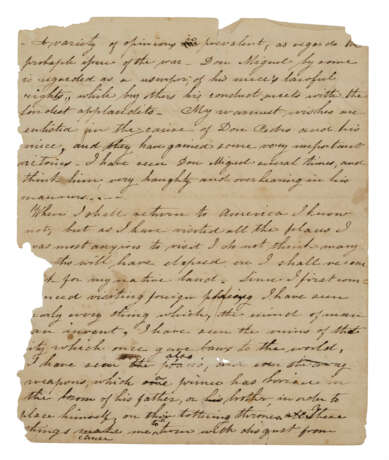 A variety of opinions is prevalent, as regards the
probable issue of the war - Don Miguel by some
is regarded as a usurper of his niece's lawful
rights, while by others his conduct meets with the
loudest applaudets - My warmest wishes are
enlisted for the cause of Don Pedro and his
niece, and they have gained some very important
victories. I have seen Don Miguel several times, and
think him very haughty and overbearing in his
manners. ----
When I shall return to America I know
not, but as I have visited all the places I
was most anxious to visit I do not think many
ths will have elapsed ere I shall re
t for my native land. Since I first com-
nced visiting foreign places I have seen
early every thing which, the mind of man
can invent, I have seen the ruins of that
ty which once gave laws to the world,
I have seen also, and even the very
weapons, which some prince has borne in
the bosom of his father, or his brother in order to
place himself on this tottering throne. These
things make me to turn with disgust from
cause